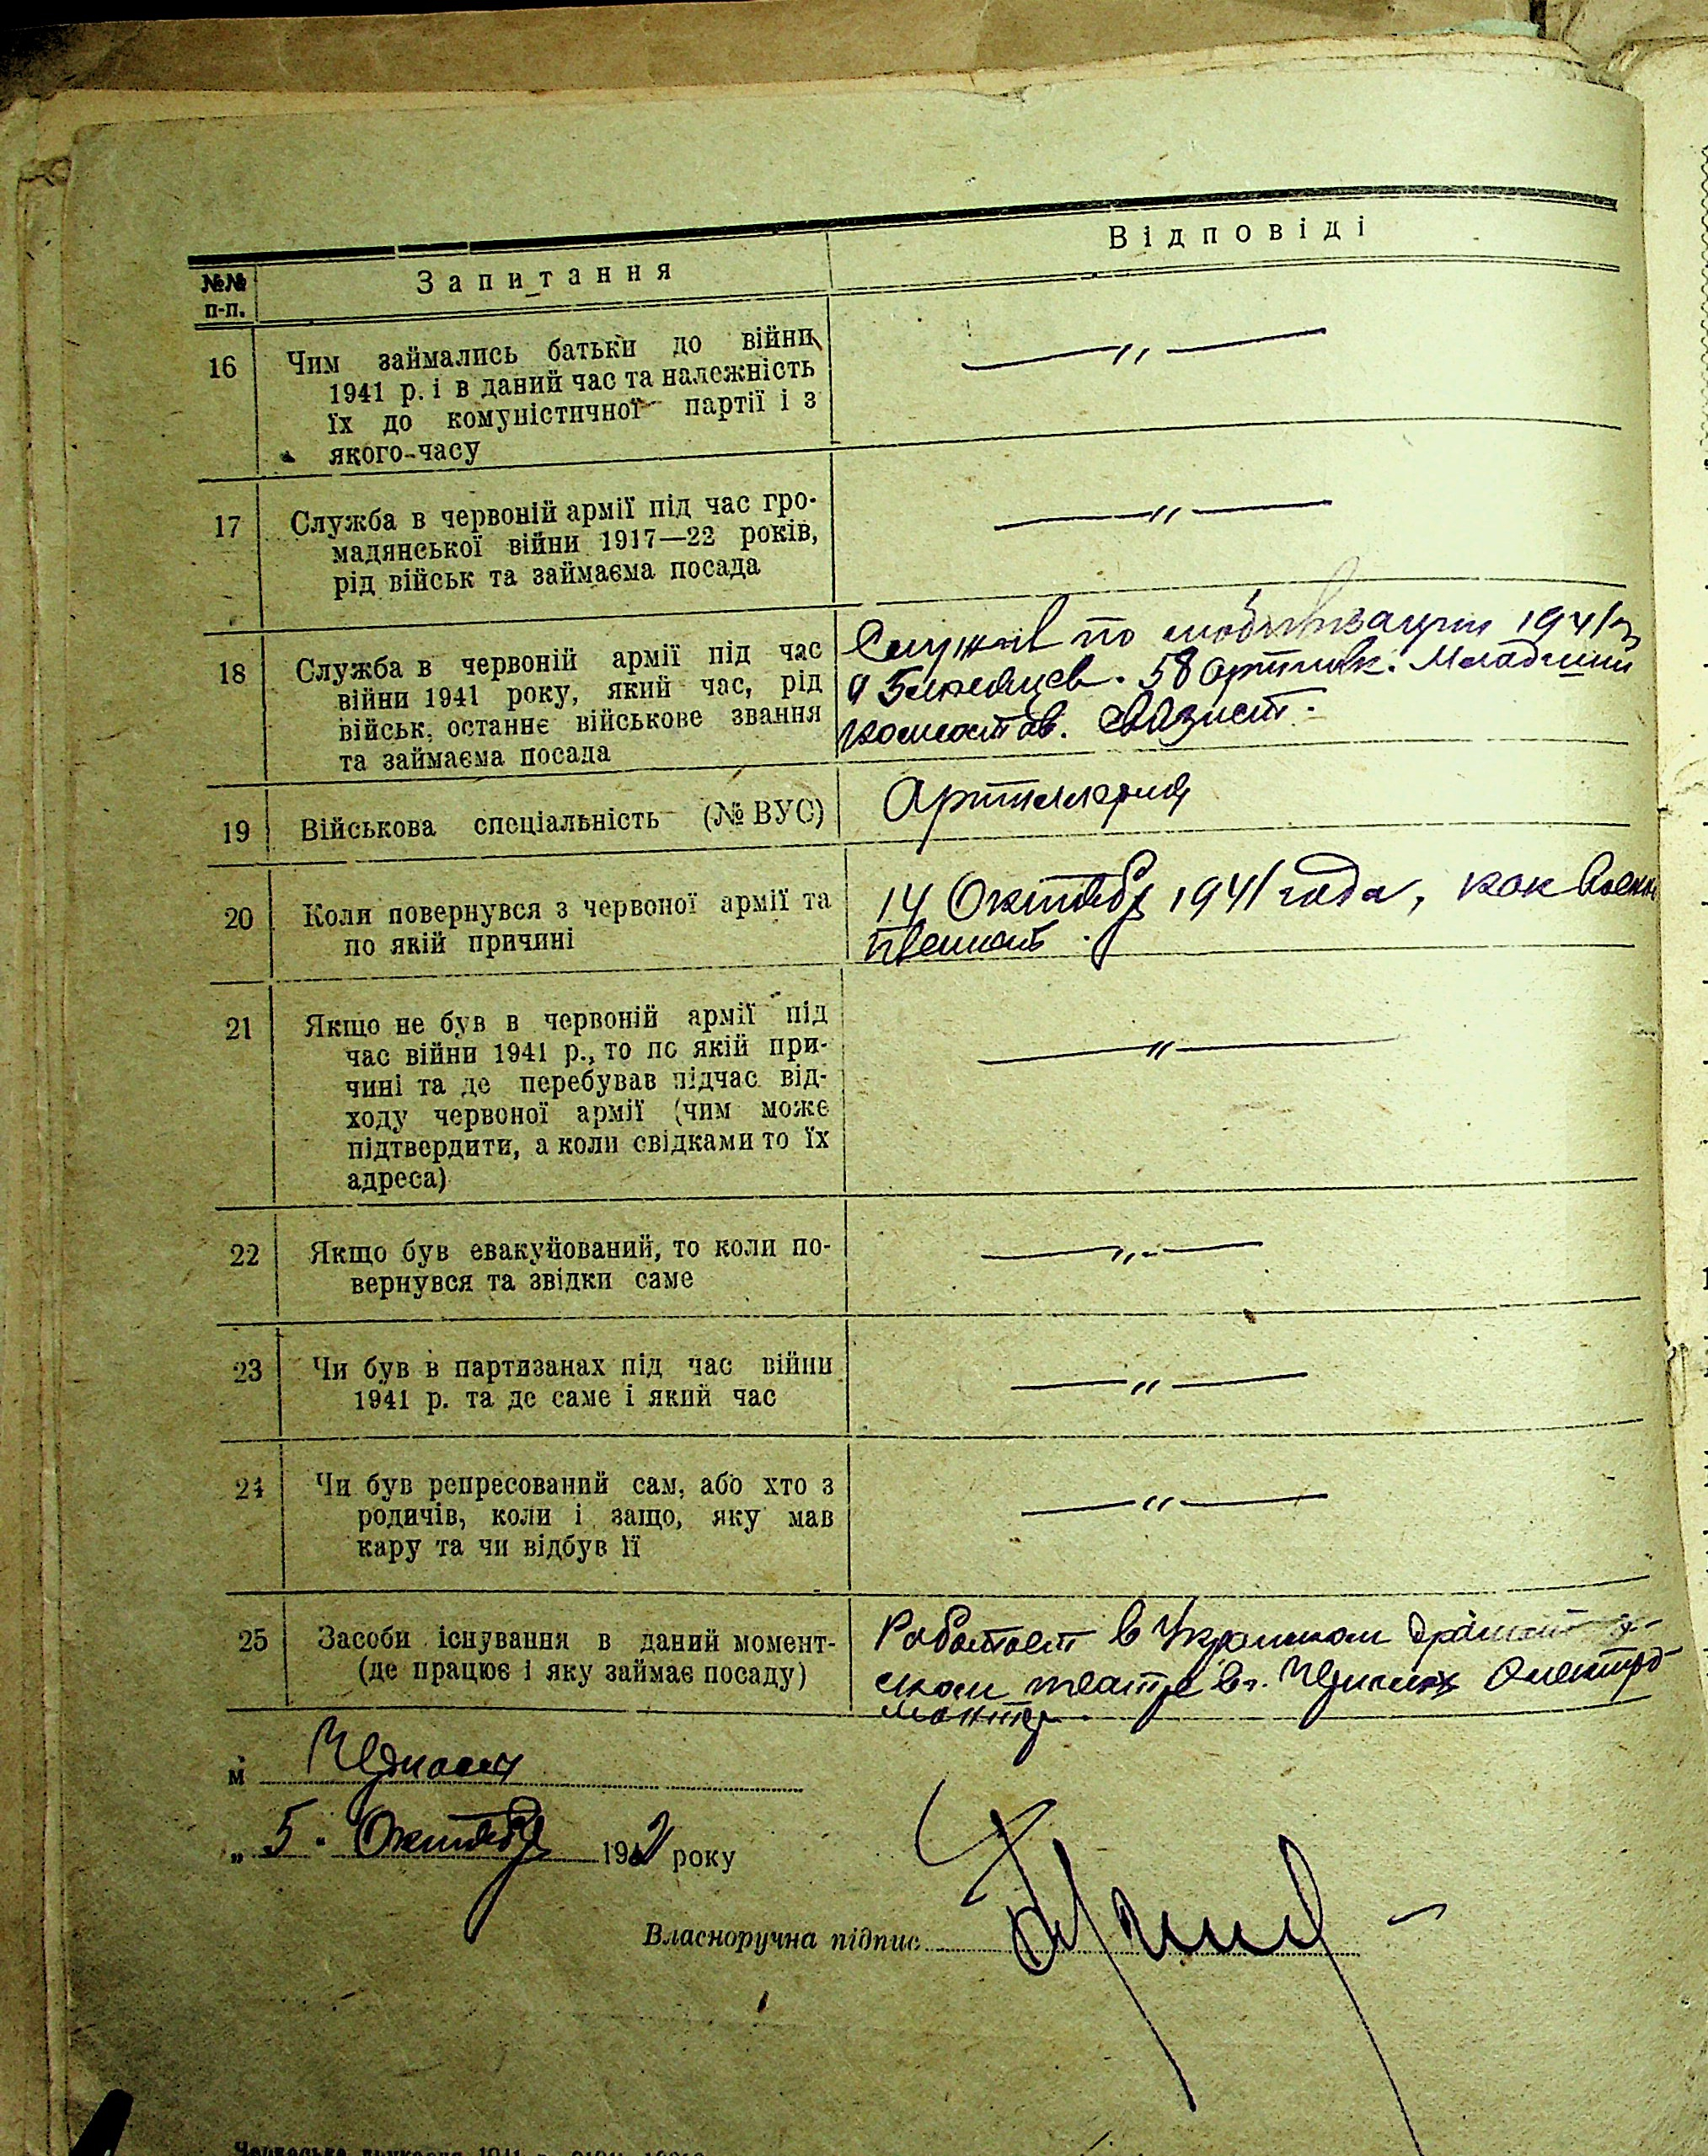 №№ п-п.
Запитання
Відповіді
16 Чим займались батьки до війни
1941 р. і в даний час та належність
їх до комуністичної партії і з
якого-часу
—〃—
17 Служба в червоній армії під час гро-
мадянської війни 1917—22 років,
рід військ та займаєма посада
—〃—
18 Служба в червоній армії під час
війни 1941 року, який час, рід
військ, останнє військове звання
та займаєма посада
Служил по мобилизации 1941 г
месяцев. 58 Младший
комсостав. связист.
19 Військова спеціальність (№ ВУС)
Артиллерия
20 Коли повернувся з червоної армії та
по якій причині
14 Октября 1941 года, как военно
пленный.
21 Якщо не був в червоній армії під
час війни 1941 р., то по якій при-
чині та де перебував підчас від-
ходу червоної армії (чим може
підтвердити, а коли свідками то їх
адреса)
—〃—
22 Якщо був евакуйований, то коли по-
вернувся та звідки саме
—〃—
23 Чи був в партизанах під час війни
1941 р. та де саме і який час
—〃—
24 Чи був репресований сам, або хто з
родичів, коли і защо, яку мав
кару та чи відбув її
—〃—
25 Засоби існування в даний момент-
(де працює і яку займає посаду)
Работает в
ском театре в г. Черкассы Электро-
монтер.
м Черкассы
„ 5. Октября 1942 року
Власноручна підпис